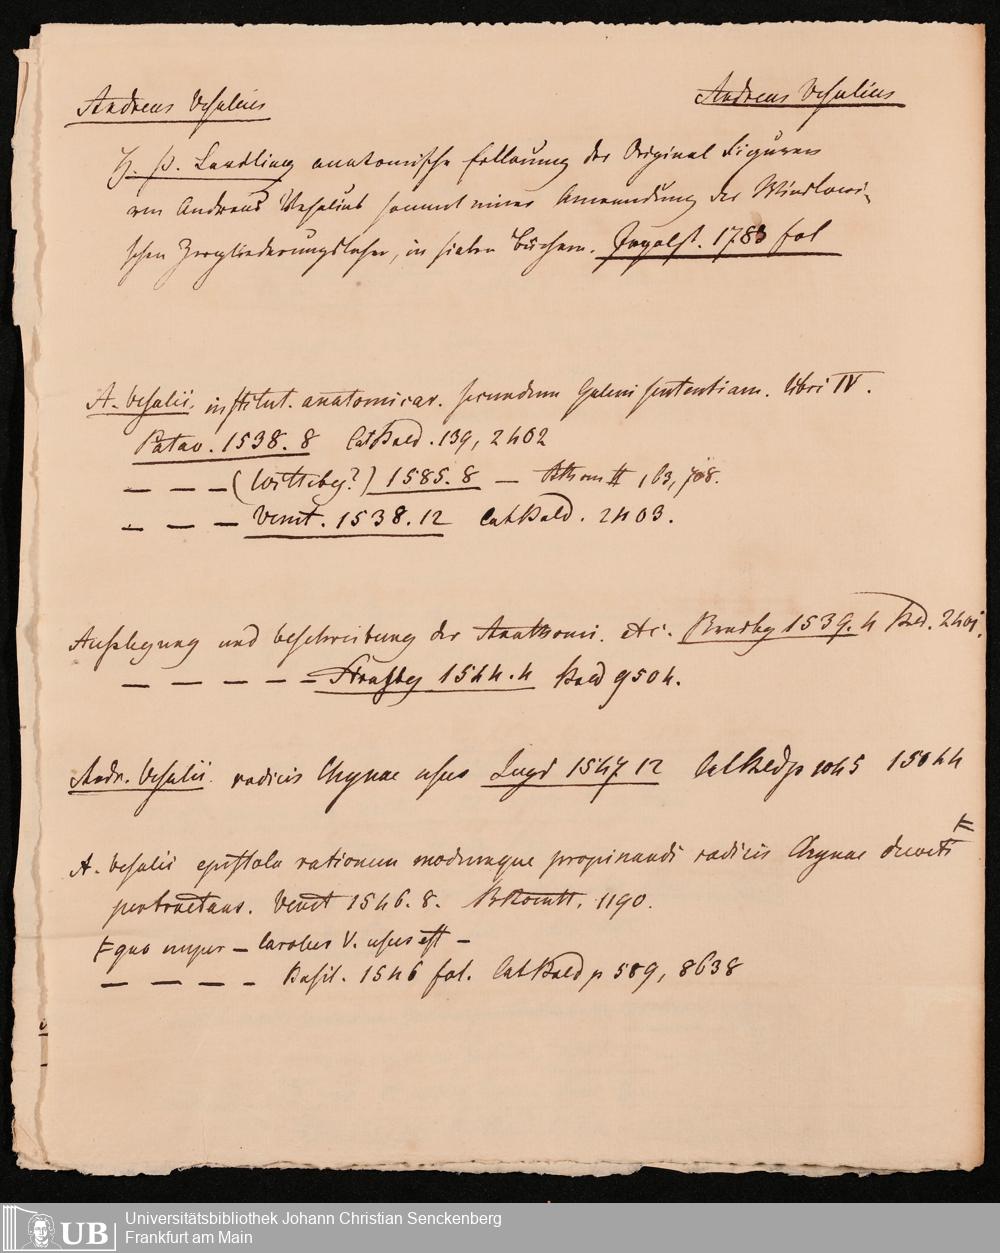 Andreas Vesalius
Andreas Vesalius
H. P. Leveling anatomische Erklärung der Original Figuren
von Andreas Vesalius sammt einer Anwendung der Winslowi-
schen Zergliederungslehre, in sieben Büchern. Ingolst. 1783 fol
A. Vesalii. institut. anatomicar. secundum Galeni sententiam. libri IV.
Patav. 1538. 8 CatBald. 139, 2402
— — — (Witteby?) 1585. 8 — II 163, 708.
— — — Venet. 1538. 12 CatBald. 2403.
Auslegung und beschreibung der Anathomi. etc. 1539. 4 Bald. 2401.
— — — — — Strasby 1544. 4 Bald 9504.
Andr. Vesalii. radicis Chynae usus Lugd 1547 12 CatBald p 1045 15044
A. Vesalii epistola rationem modumque propinandi radicis Chynae decocti F
pertractans. Venet 1546. 8. 1190.
F quo nuper – Carolus V. usus est –
— — — — Basil. 1546 fol. CatBald p 589, 8638
UB
Universitätsbibliothek Johann Christian Senckenberg
Frankfurt am Main